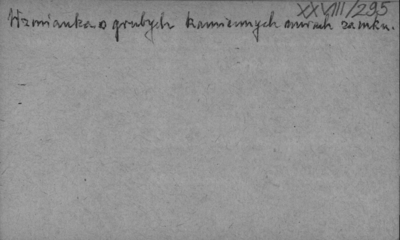 XXVIII/295
Wzmianka o grubych kamiennych murach zamku.